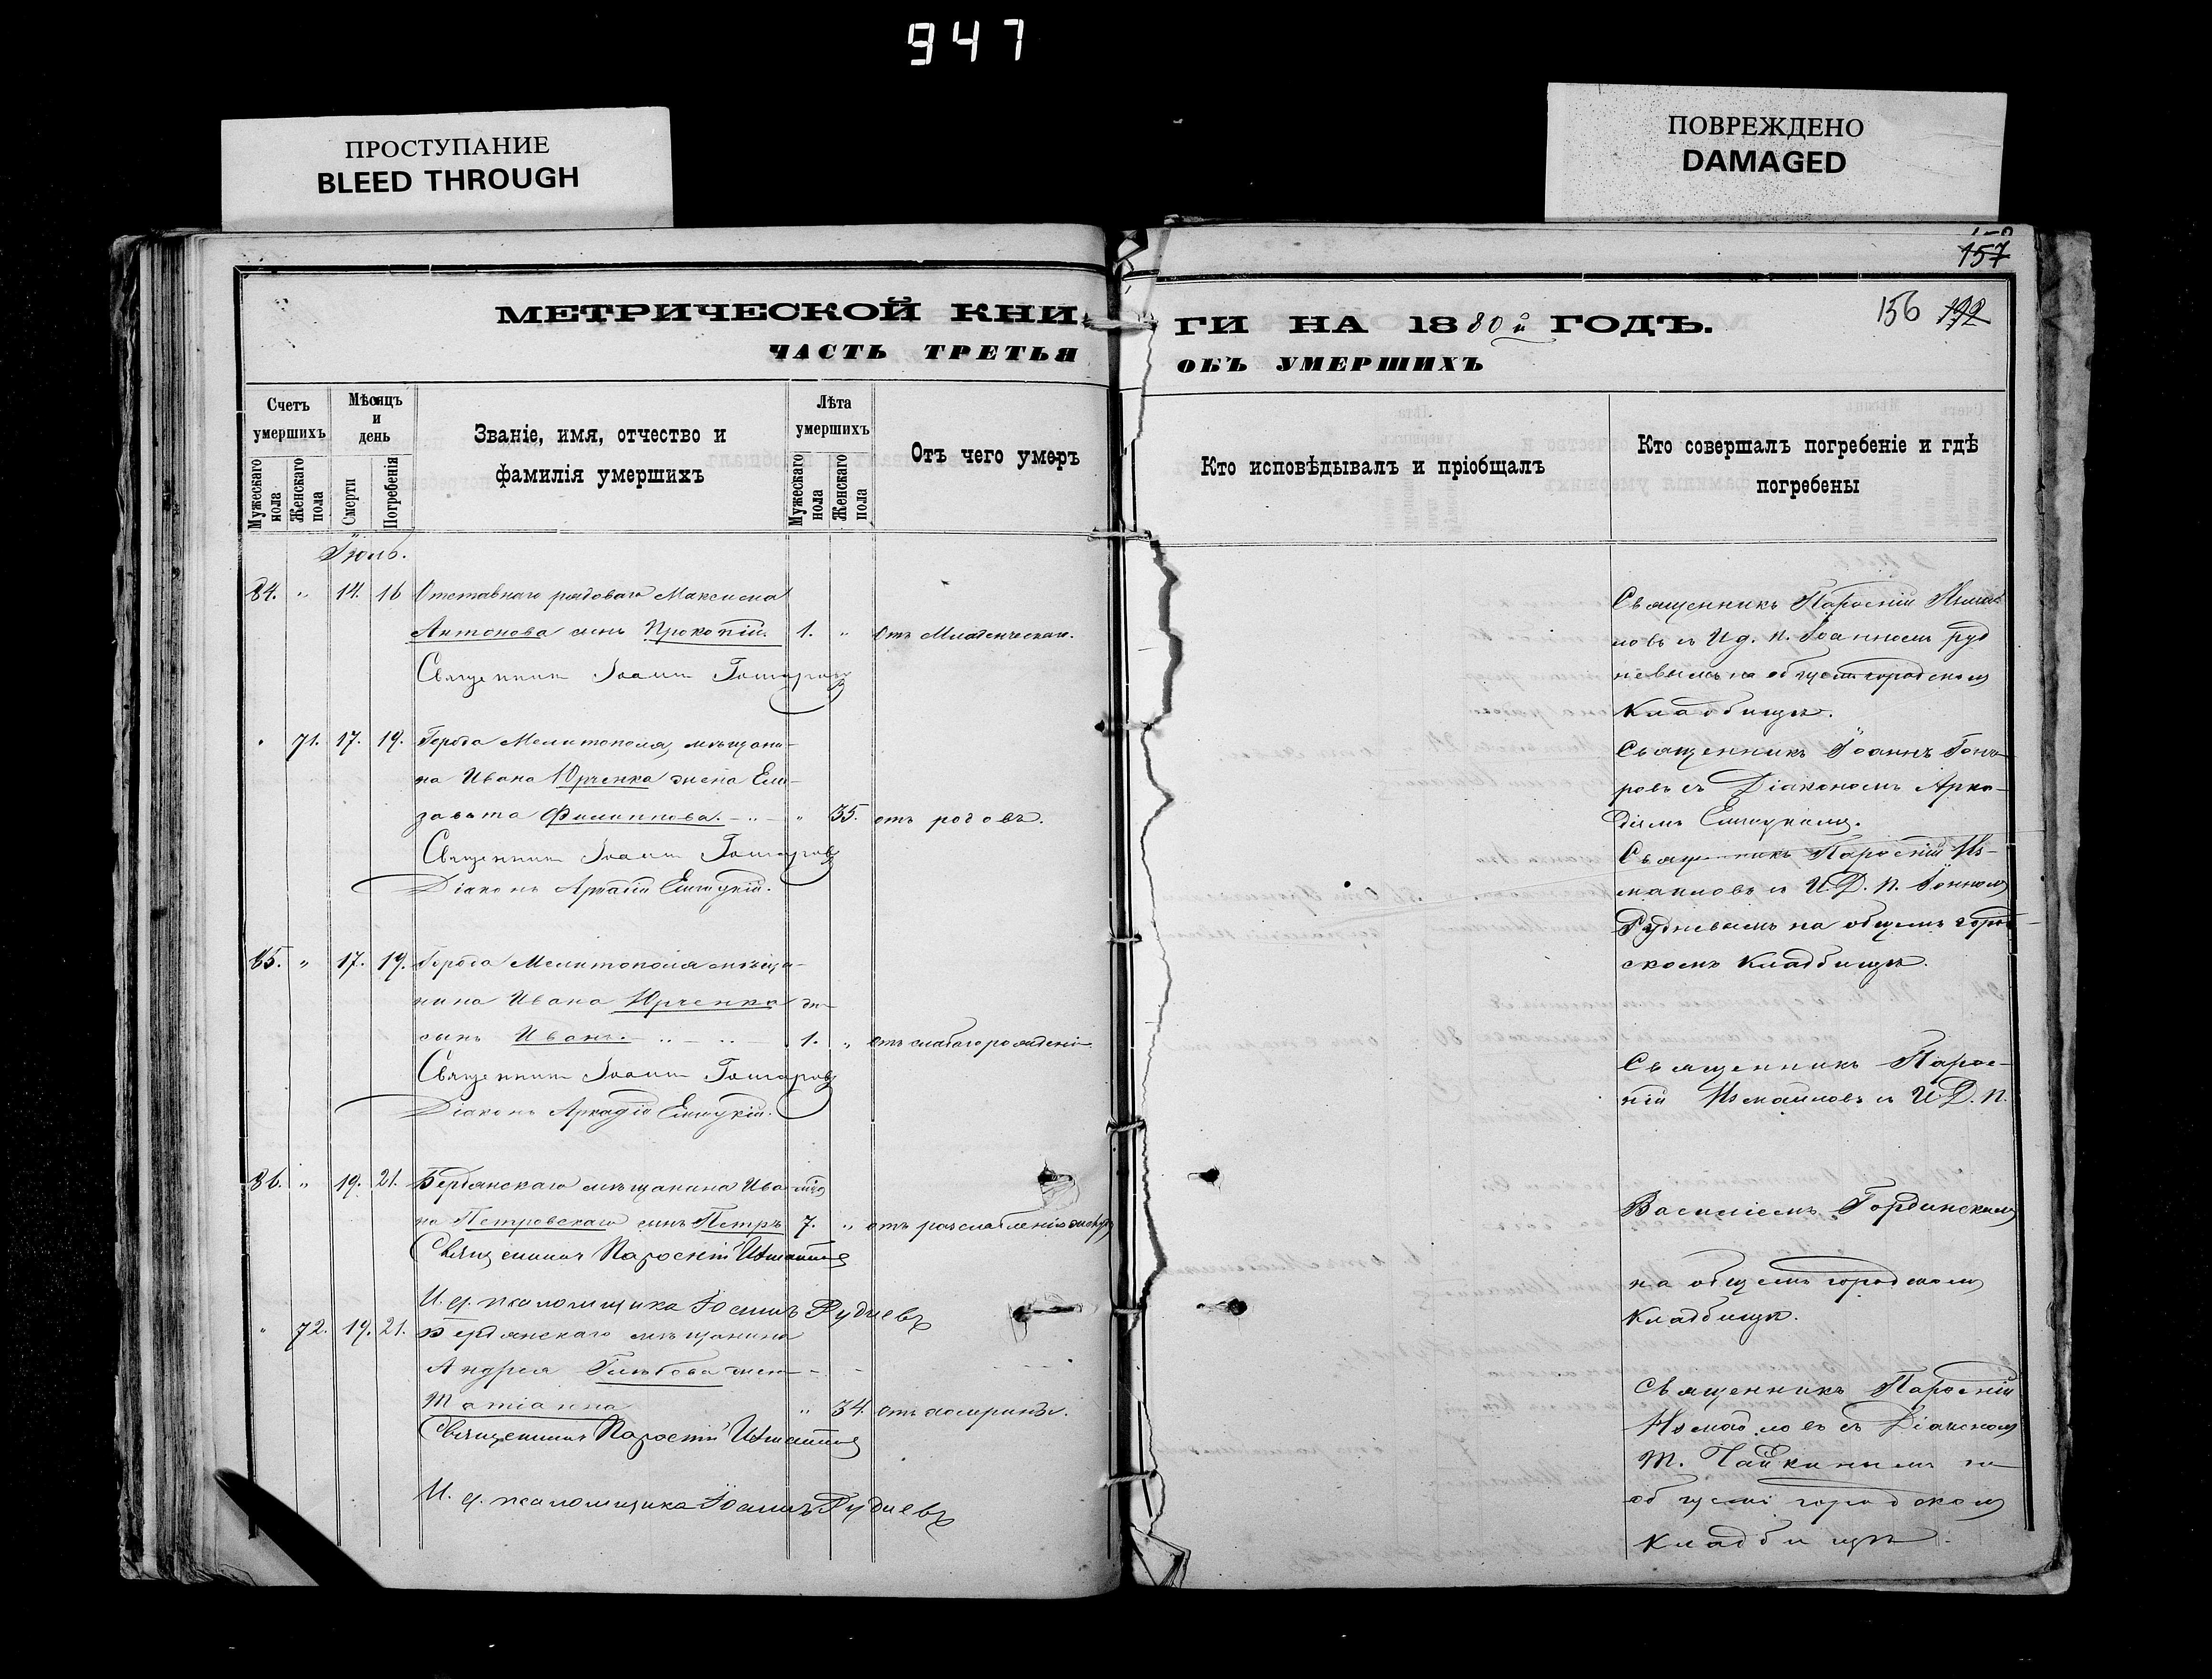 947
ПРОСТУПАНИЕ
BLEED THROUGH
ПОВРЕЖДЕНО
DAMAGED
157
156 192
МЕТРИЧЕСКОЙ КНИ
ЧАСТЬ ТРЕТЬЯ
ГИ НА 1880й ГОДЪ.
ОБЪ УМЕРШИХЪ
Счетъ умершихъ
Мужескаго пола
Женскаго пола
Мѣсяцъ и день
Смерти
Погребенія
Званіе, имя, отчество и
фамилія умершихъ
Лѣта умершихъ
Мужескаго пола
Женскаго пола
Отъ чего умеръ
Кто исповѣдывалъ и пріобщалъ
Кто совершалъ погребеніе и гдѣ
погребены
Іюль.
84. " 14. 16 Отставнаго рядоваго Максима
Антонова сынъ Прокопій. 1. " отъ Младенческой.
Священникъ Іоаннъ Гончаровъ
" 71. 17. 19. Города Мелитополя, мѣщани-
на Ивана Юрченка жена Ели-
завета Филиппова. " 35. отъ родовъ.
Священникъ Іоаннъ Гончаровъ
Діаконъ Аркадій
85. " 17. 19. Города Мелитополя мѣща-
нина Ивана Юрченка
сынъ Иванъ. 1. " отъ слабаго рожденія
Священникъ Іоаннъ Гончаровъ
Діаконъ Аркадій
86. " 19. 21. Бердянскаго мѣщанина Ива
на Петровскаго сынъ Петръ 7. " отъ разслабленія
Священникъ Парѳеній Измаиловъ
И. д. псаломщика Іоаннъ Рудневъ
" 72. 19. 21. Бердянскаго мѣщанина
Андрея Глѣбова жен
Татіанна " 34. отъ
Священникъ Парѳеній Измаиловъ
И. д. псаломщика Іоаннъ Рудневъ
Священникъ Парѳеній Измаи
ловъ съ И д. п. Іоанномъ руд
невымъ на общемъ городскомъ
Кладбищѣ.
Священникъ Іоаннъ Гонча
ровъ съ Діакономъ Арка-
діемъ
Священникъ Парѳеній Из-
маиловъ съ И. Д. п. Іоанномъ
Рудневымъ на общемъ город-
скомъ Кладбищѣ.
Священникъ Парѳе-
ній Измаиловъ съ И Д. п.
Василіемъ Гординскимъ
на общемъ городскомъ
Кладбищѣ.
Священникъ Парѳеній
Измаиловъ съ Діакономъ
Т. Чайкинымъ на
общемъ городскомъ
Кладбищѣ.